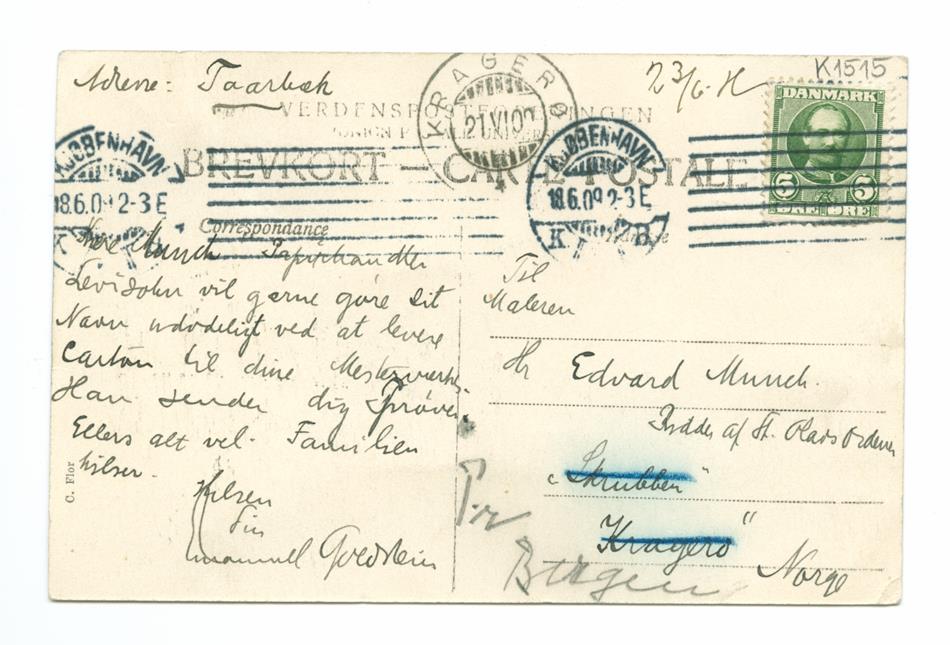 K1515
Adresse: Taarbæk
23/6-H
KRAGERØ
21 VI 09
VERDENSPOSTFORENINGEN
DANMARK
5 5
ØRE ØRE
BREVKORT — CARTE POSTALE
KJØBENHAVN
18.6.09 2-3 E
K
KJØBENHAVN
18.6.09 2-3 E
K B
Correspondance
Kære Munch Papirhandler
Levisohn vil gerne gøre Dit
Navn udødeligt ved at levere
Carton til dine Mesterværker
Han sender dig Prøver.
Ellers alt vel. Familien
hilser.
Hilsen
Din
Emanuel Goldstein
C. Flor
Til
Maleren
Hr Edvard Munch.
Ridder af St. Olavs Ordenen
"Skrubben"
Kragerø"
Norge
Bergen